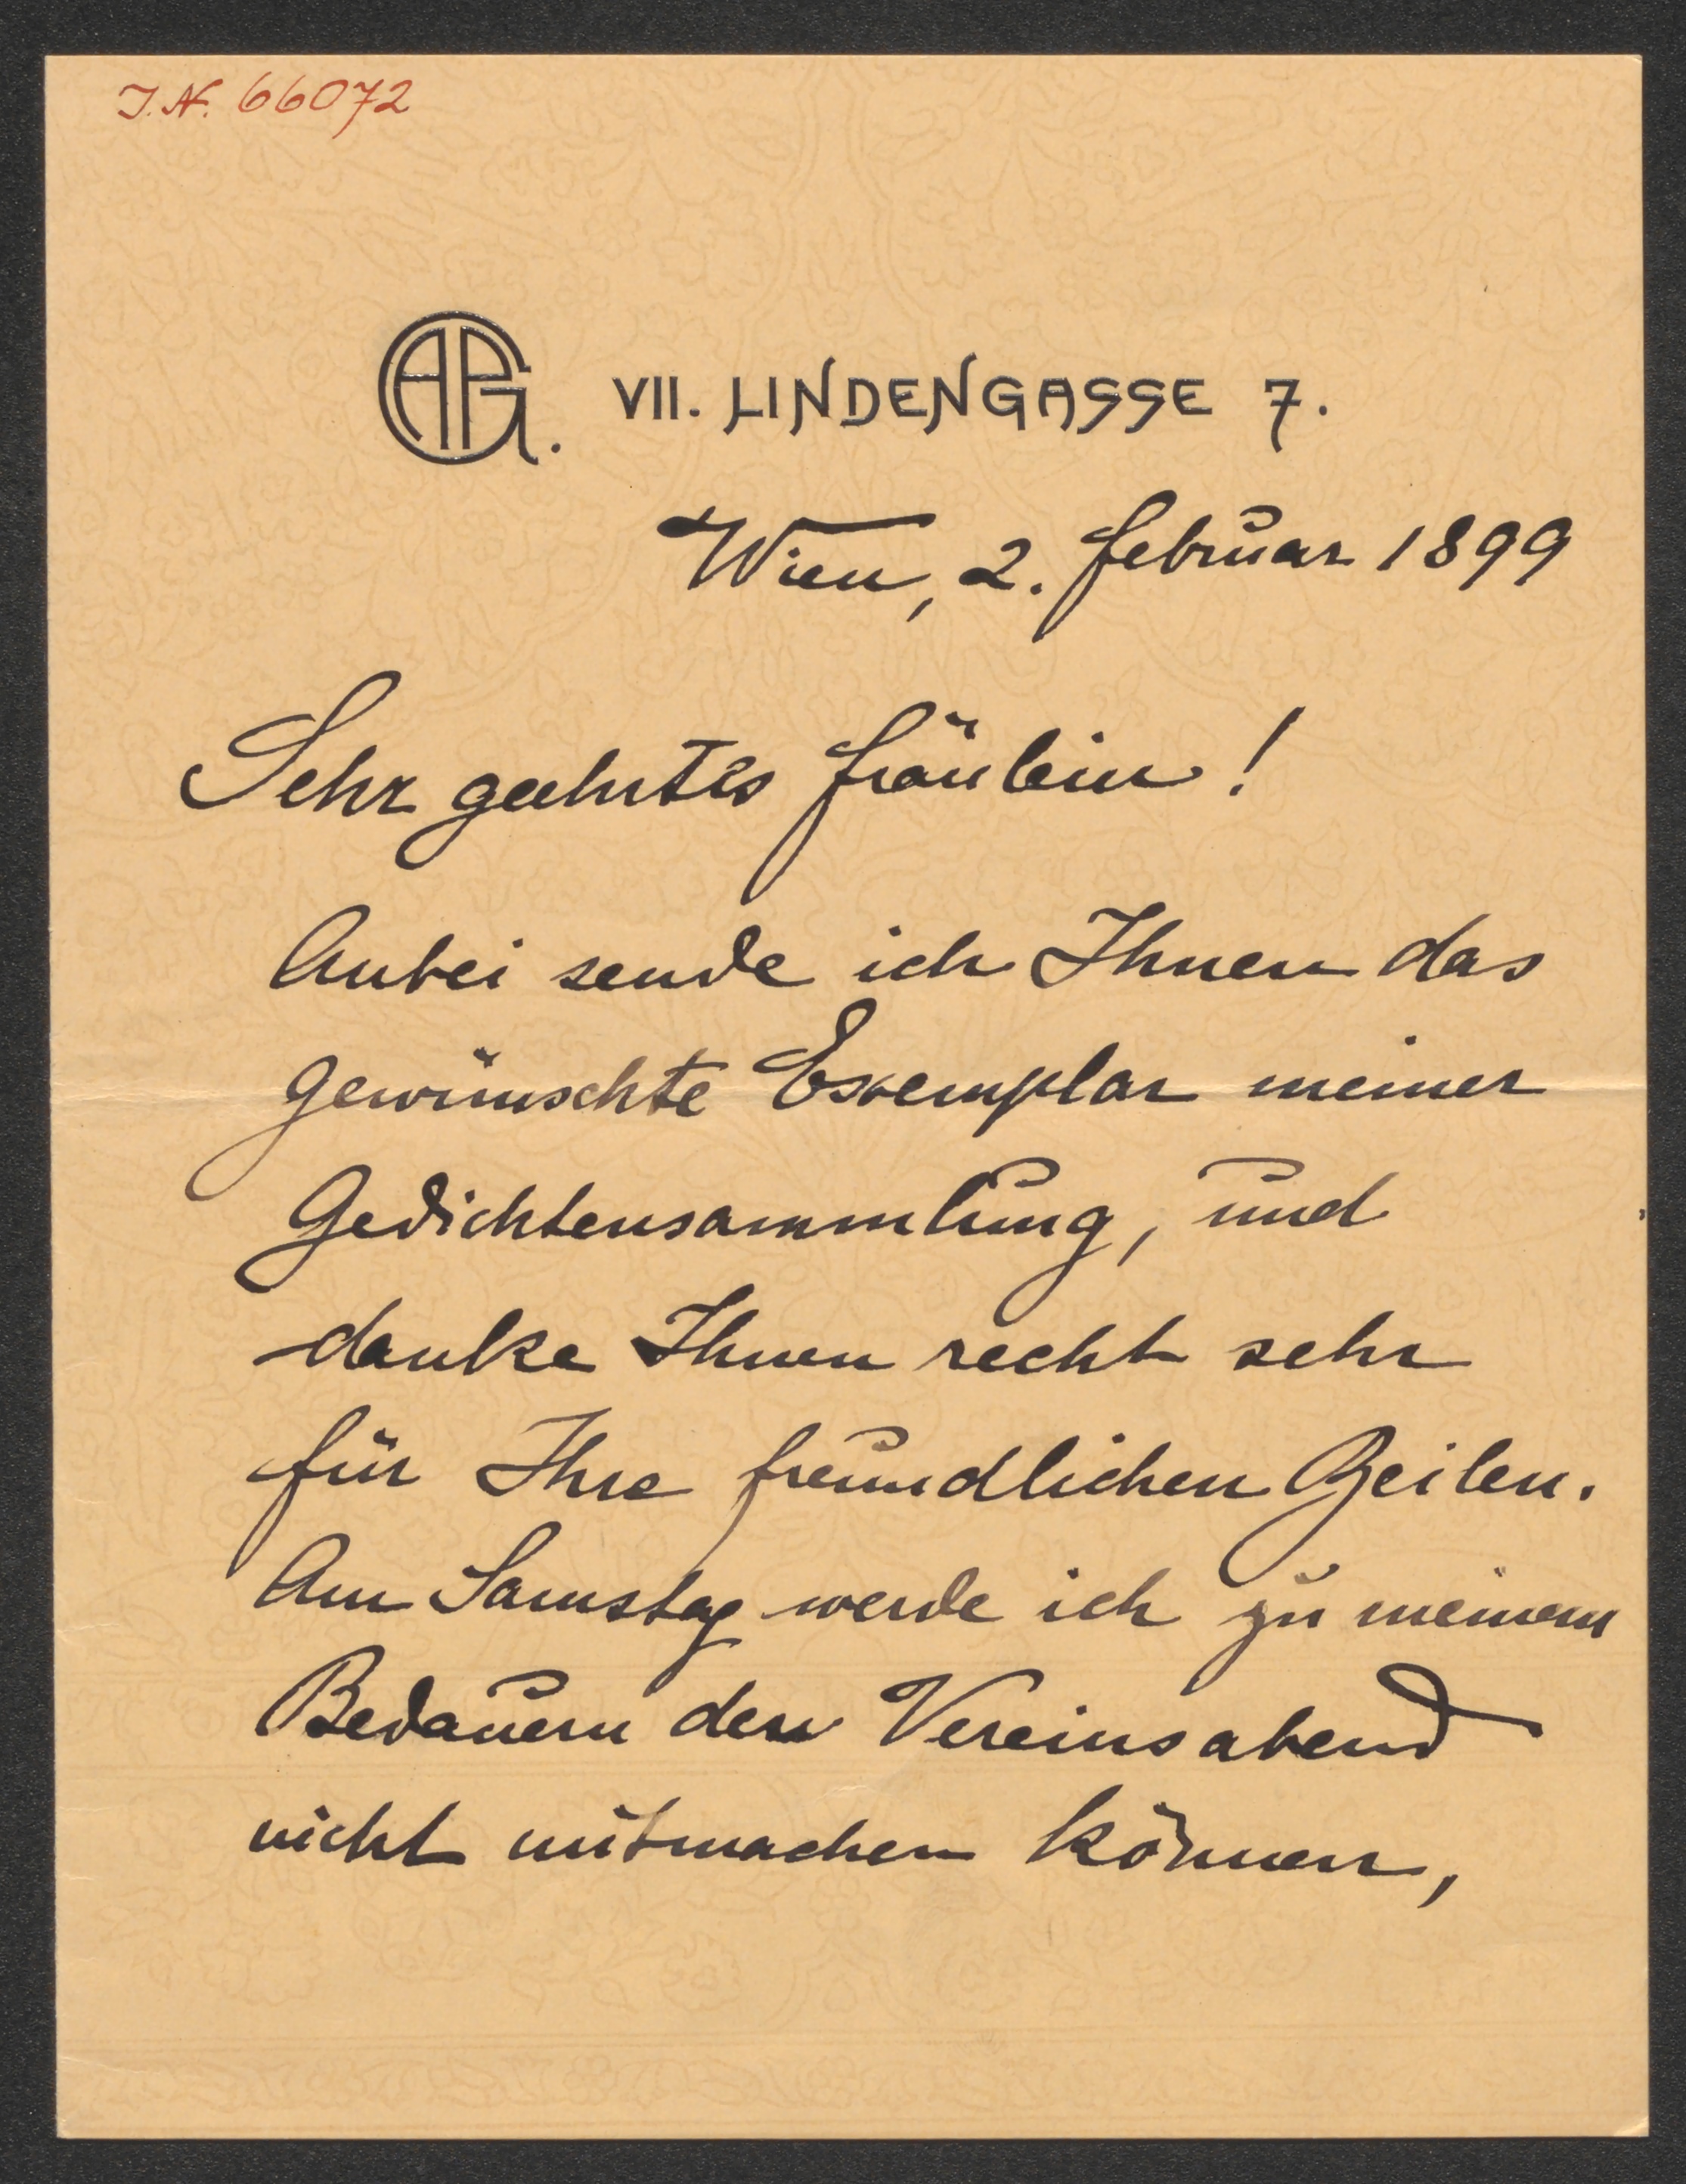 I.N. 66072
APG. VII. LINDENGASSE 7.
Wien, 2. Februar 1899
Sehr geehrtes Fräulein!
Anbei sende ich Ihnen das
gewünschte Exemplar meiner
Gedichtensammlung, und
danke Ihnen recht sehr
für Ihre freundlichen Zeilen.
Am Samstag werde ich zu meinem
Bedauern den Vereinsabend
nicht mitmachen können,